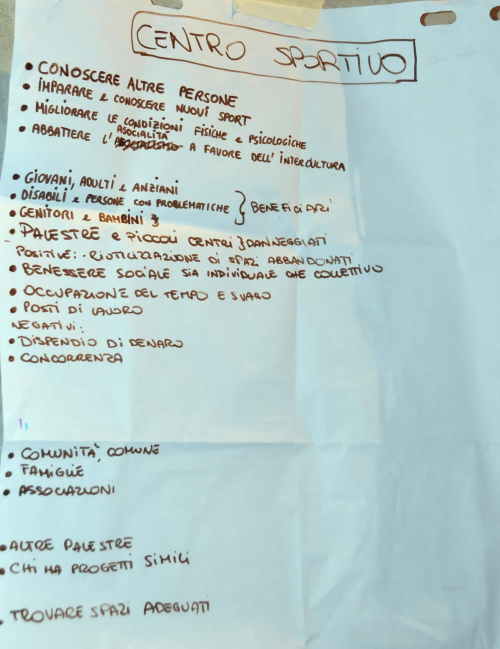 CENTRO SPORTIVO
• CONOSCERE ALTRE PERSONE
• IMPARARE e CONOSCERE NUOVI SPORT
• MIGLIORARE LE CONDIZIONI FISICHE e PSICOLOGICHE
• ABBATTERE L'ASOCIALITÀ A FAVORE DELL'INTERCULTURA
• GIOVANI, ADULTI e ANZIANI
• DISABILI e PERSONE CON PROBLEMATICHE } BENEFICIARI
• GENITORI e BAMBINI }
• PALESTRE e PICCOLI CENTRI } DANNEGGIATI
POSITIVE: - RIUTILIZZAZIONE DI SPAZI ABBANDONATI
• BENESSERE SOCIALE SIA INDIVIDUALE CHE COLLETTIVO
• OCCUPAZIONE DEL TEMPO E SVAGO
• POSTI DI LAVORO
NEGATIVI:
• DISPENDIO DI DENARO
• CONCORRENZA
• COMUNITÀ, COMUNE
• FAMIGLIE
• ASSOCIAZIONI
• ALTRE PALESTRE
• CHI HA PROGETTI SIMILI
• TROVARE SPAZI ADEGUATI